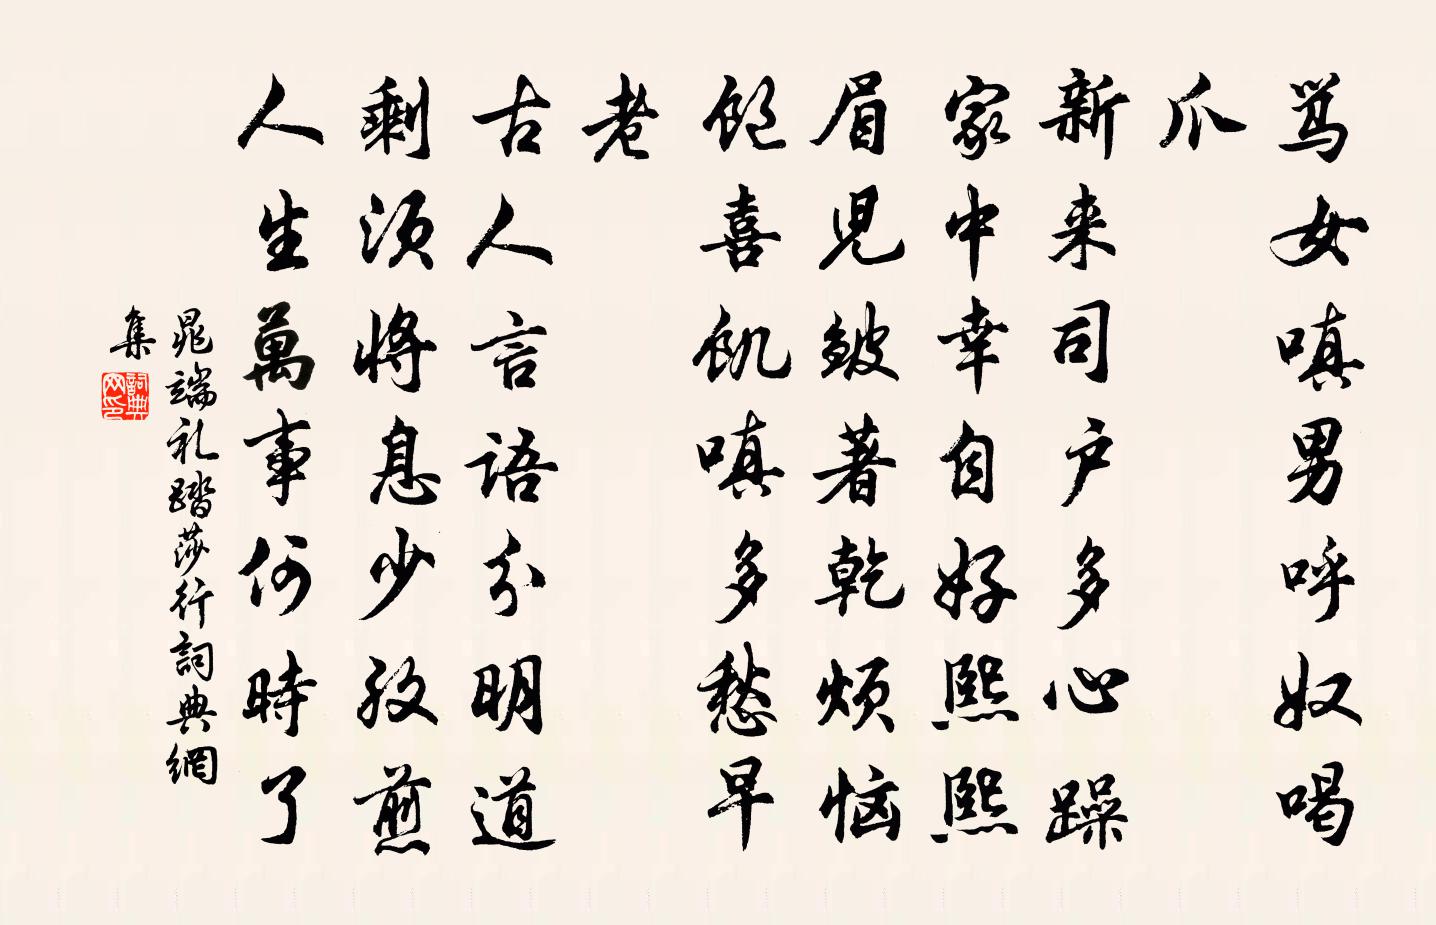 骂女嗔男呼奴喝
爪
新来司户多心躁
家中幸自好熙熙
眉儿皱著乾烦恼
饱喜飢嗔多愁早
老
古人言语分明道
剩须将息少孜煎
人生萬事何時了
晁端礼踏莎行詞典網
集
詞典
网印